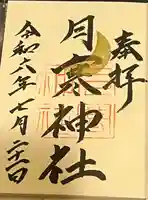 奉拝
月寒神社
令和六年七月二十一日